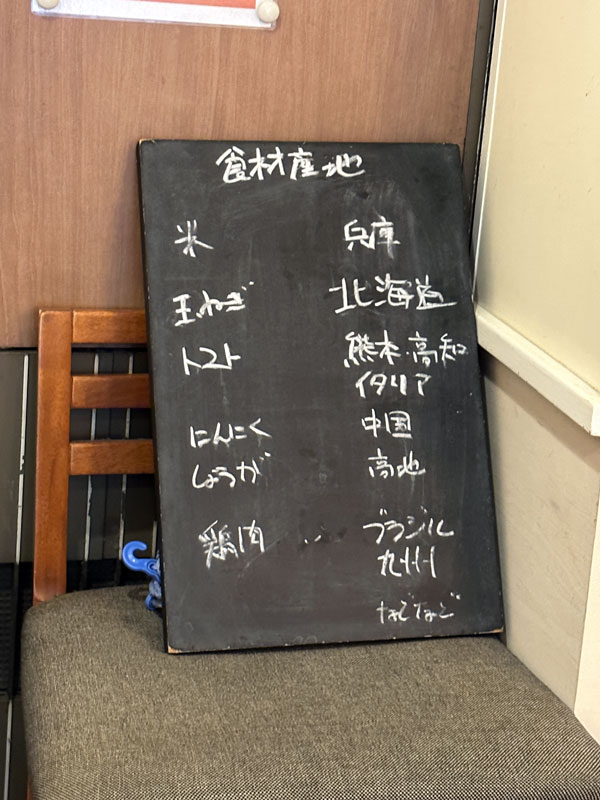 食材産地
米 兵庫
玉ねぎ 北海道
トマト 熊本・高知
イタリア
にんにく 中国
しょうが 高地
鶏肉 ブラジル
九州
などなど